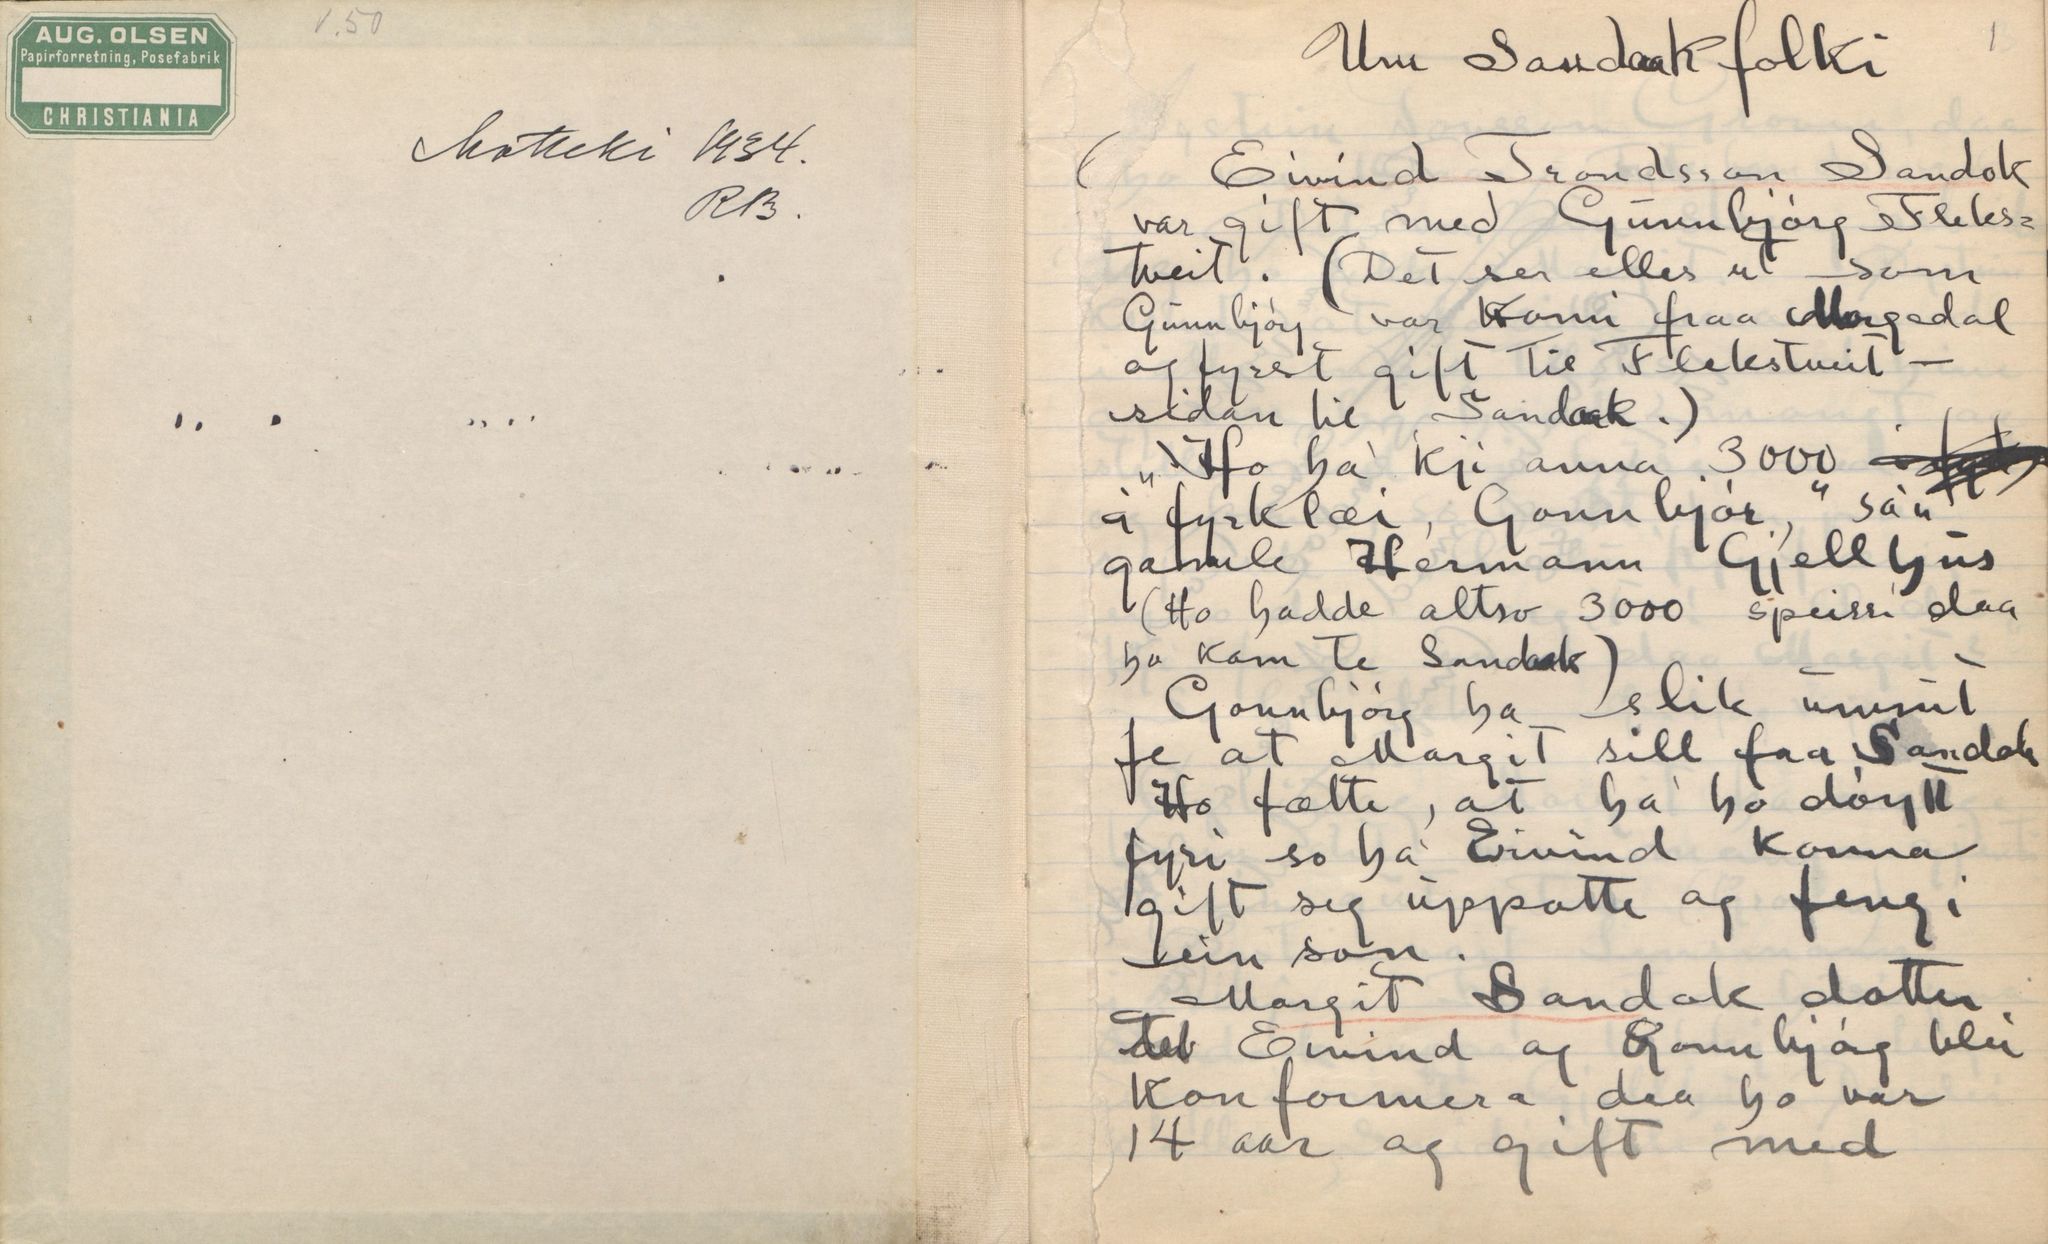 AUG. OLSEN
Papirforretning, Posefabrik
CHRISTIANIA
1.50
Motteki 1934.
RB.
1
Um Sandaakfolki
( Eivind Trondsson Sandok
var gift med Gunnbjørg Fleks=
tveit. (Det ser elles ut som
Gunnbjørg var komi fraa Morgedal
og fyrst gift til Flekstveit —
sidan til Sandaak.)
"Ho ha' kji anna 3000
i fyrklæi, Gonnbjør," sa'n
gamle Hermann Gjellhus
(Ho hadde altso 3000 speissi daa
ho kom te Sandaak)
Gonnbjørg ha slik umut
fe at Margit sill faa Sandok
Ho fætte, at ha' ho døytt
fyri so ha' Eivind konna
gift seg uppatte og fengi
ein son.
Margit Sandok dotter
til Eivind og Gonnbjørg blei
konformera daa ho var
14 aar og gift med